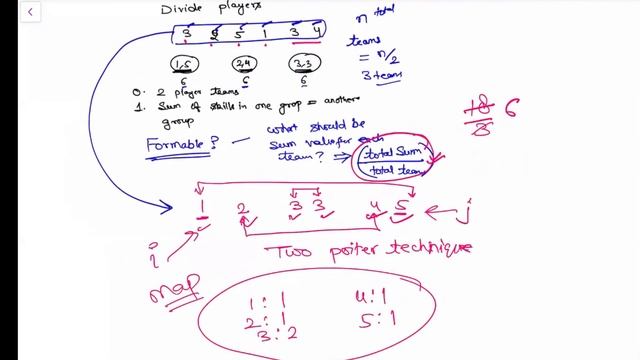 Divide players
3 2 5 1 3 4
n total
teams
= n/2
3 teams
1,5 2,4 3,3
6 6 6
0. 2 player teams
1. Sum of skills in one grop = another
group
Formable? — what should be
sum value for each
team? ⇒ total sum
total team
18 6
3
1 2 3 3 4 5 j
i
Two poiter technique
map
1:1 4:1
2:1 5:1
3:2